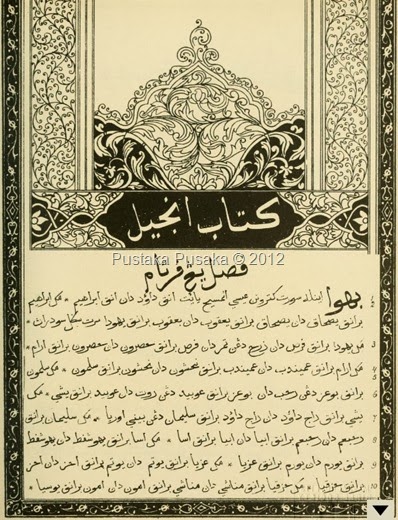 كتاب انجيل
Pustaka Pusaka © 2012
فصل يڠ ڤرتام
بهوا اينله سورت كتورونن عيسى المسيح يائيت انق داؤد دان انق ابراهيم * مك ابراهيم
برانق يصحاق دان يصحاق برانق يعقوب دان يعقوب برانق يهودا سرت سكل سودراڽ *
مك يهودا برانق فرص دان زرح دڠن تمر دان فرص برانق حصرون دان حصرون برانق ارام *
مك ارام برانق عميندب دان عميندب برانق نحشون دان نحشون برانق سلمون * مك سلمون
برانق بوعز دڠن رحب دان بوعز برانق عوبيد دڠن روت دان عوبيد برانق يشي * مك
يشي برانق راج داؤد دان راج داؤد برانق سليمان دڠن بيني اوريا * مك سليمان برانق
رحبعم دان رحبعم برانق ابيا دان ابيا برانق اسا * مك اسا برانق يهوشفط دان يهوشفط
برانق يورم دان يورم برانق عزيا * مك عزيا برانق يوتم دان يوتم برانق احز دان احز
برانق حزقيا * مك حزقيا برانق مناشي دان مناشي برانق امون دان امون برانق يوسيا *